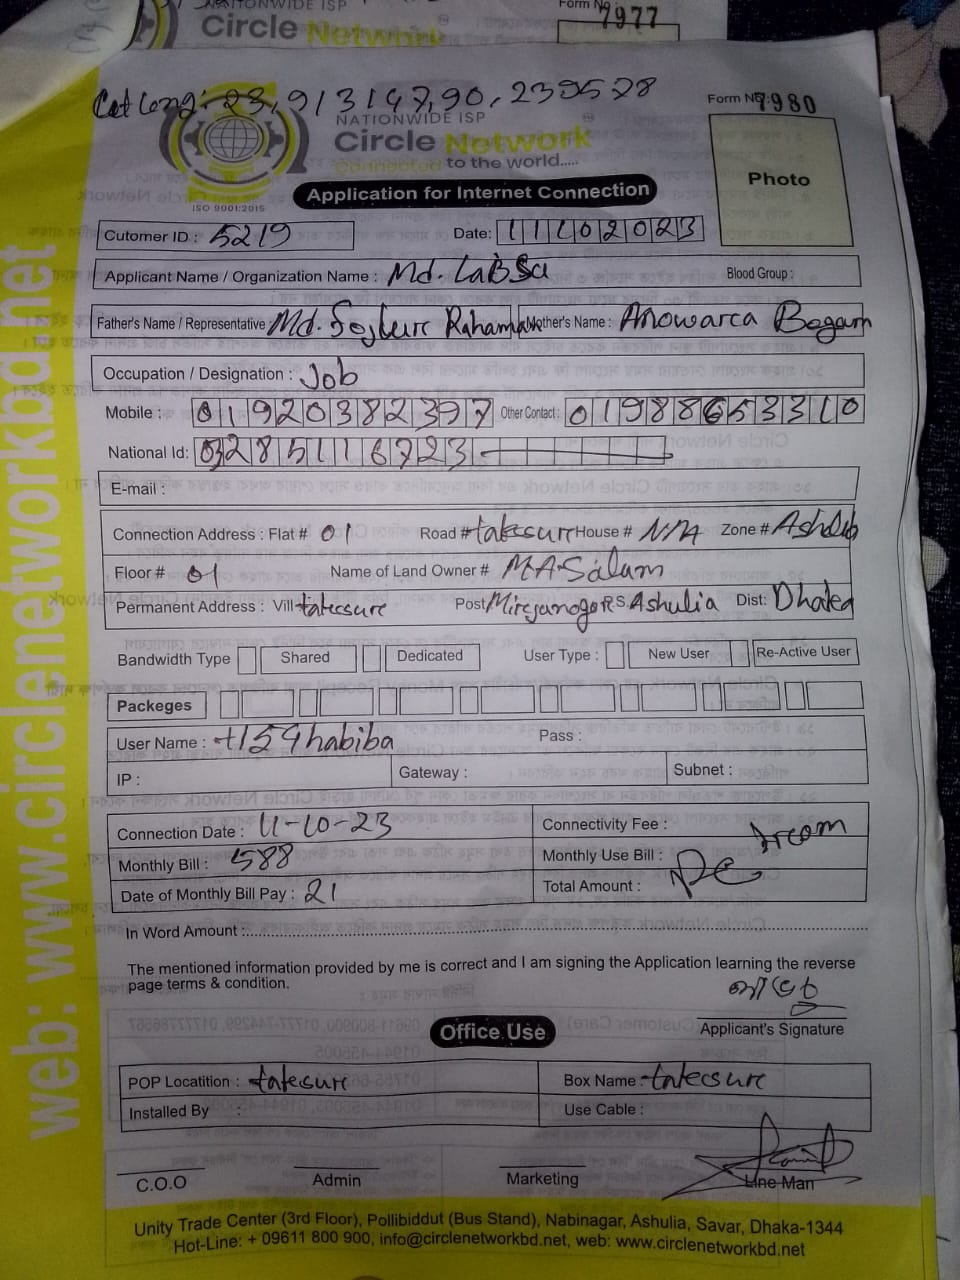 NATIONWIDE ISP
Circle Network
Form No
7977
Form No: 7980
NATIONWIDE ISP
Circle Network
Connected to the world.....
ISO 9001:2015
Application for Internet Connection
Photo
Cutomer ID : 5219
Date: 11102023
Applicant Name / Organization Name : Md.
Blood Group :
Father's Name / Representative Md. Rahaman
Mother's Name : Begam
Occupation / Designation : Job
Mobile : 01920382397 Other Contact : 01988653310
National Id: 3285116723
E-mail :
Connection Address : Flat # 01 Road # House # N/A Zone # Ashulia
Floor # 01 Name of Land Owner # M.A. Salam
Permanent Address : Vill Post P.S. Ashulia Dist: Dhaka
Bandwidth Type Shared Dedicated User Type : New User Re-Active User
Packeges
User Name : Pass :
IP : Gateway : Subnet :
Connection Date : 11-10-23 Connectivity Fee :
Monthly Bill : 588 Monthly Use Bill :
Date of Monthly Bill Pay : 21 Total Amount :
In Word Amount :
The mentioned information provided by me is correct and I am signing the Application learning the reverse
page terms & condition.
Applicant's Signature
Office Use
POP Locatition : Box Name :
Installed By : Use Cable :
C.O.O Admin Marketing Line Man
Unity Trade Center (3rd Floor), Pollibiddut (Bus Stand), Nabinagar, Ashulia, Savar, Dhaka-1344
Hot-Line: + 09611 800 900, info@circlenetworkbd.net, web: www.circlenetworkbd.net
web: www.circlenetworkbd.net